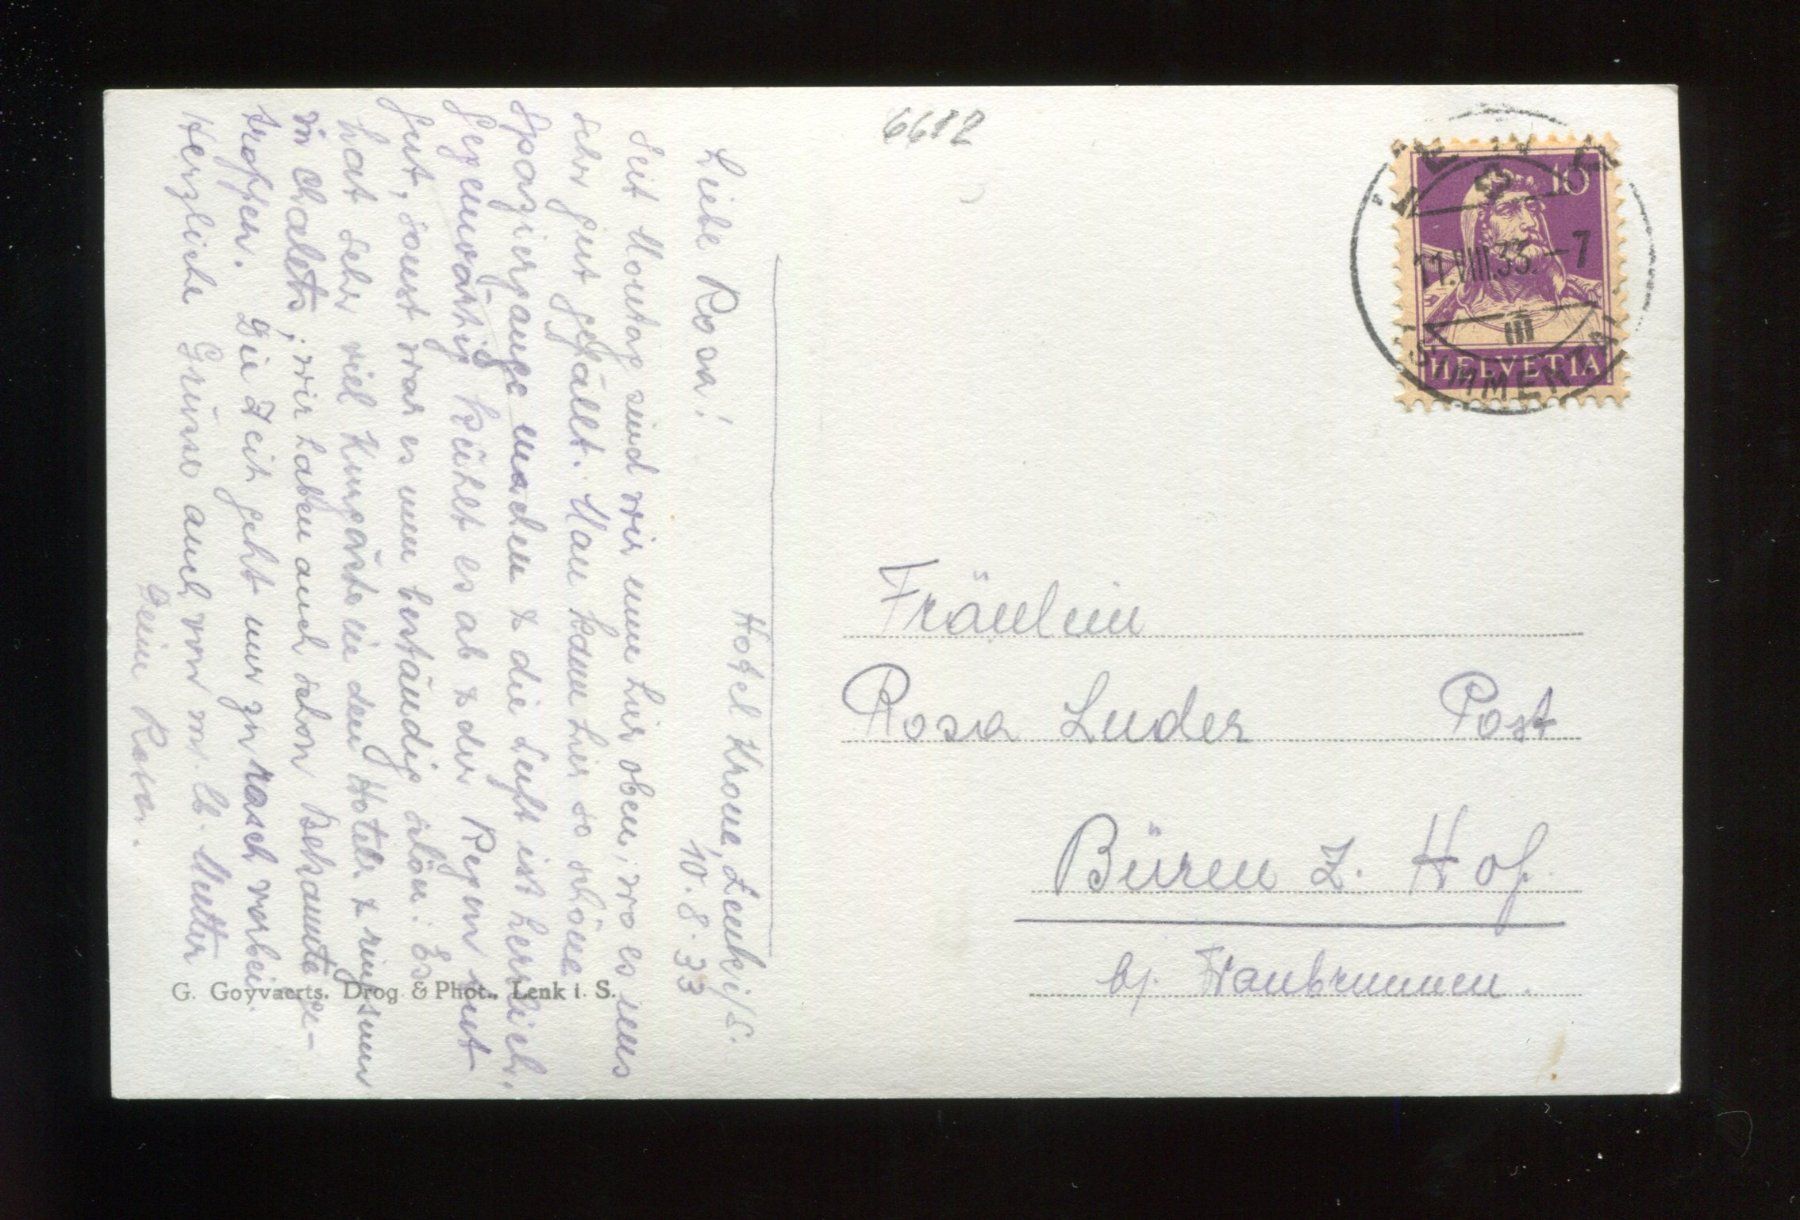 6682
Hotel Krone, Lenk i/S.
10. 8. 33
Liebe Rosa!
Seit Montag sind wir nun hier oben, wo es uns
sehr gut gefällt. Man kann hier so schöne
Spaziergänge machen & die Luft ist herrlich.
Gegenwärtig kühlt es ab & der Regen tut
gut, sonst war es nun beständig schön. Es
hat sehr viel Kurgäste in den Hotels & ringsum
in Chalets, wir haben auch schon Bekannte ge-
troffen. Die Zeit geht nur zu rasch vorbei.
Herzliche Grüsse auch von m. lb. Mutter
Deine
G. Goyvaerts, Drog. & Phot., Lenk i. S.
LENK
11.VIII.33.-7
(SIMMENTAL)
10
HELVETIA
Fräulein
Rosa Luder Post
Büren z. Hof.
b/. Fraubrunnen.